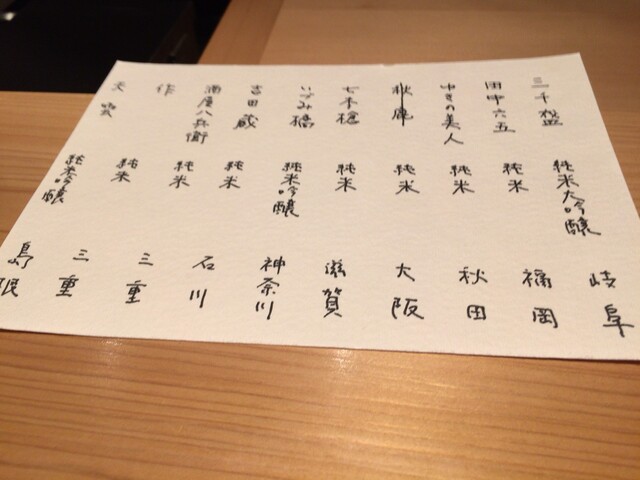 三千盛 純米大吟醸 岐阜
田中六五 純米 福岡
ゆきの美人 純米 秋田
秋鹿 純米 大阪
七本槍 純米 滋賀
いづみ橋 純米吟醸 神奈川
吉田蔵 純米 石川
酒屋八兵衛 純米 三重
作 純米 三重
純米吟醸 島根